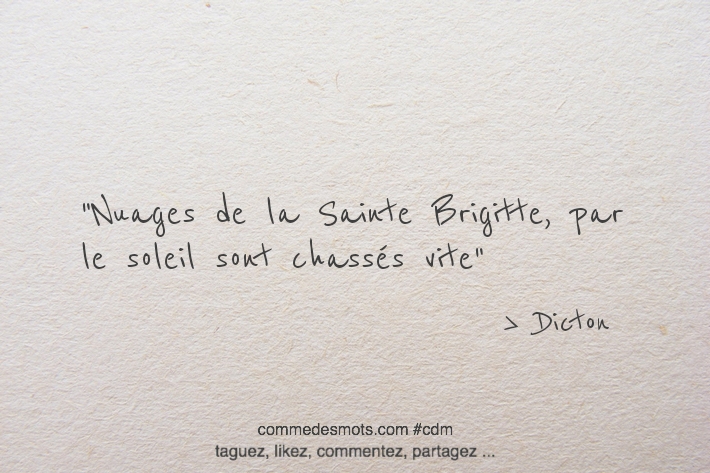 "Nuages de la Sainte Brigitte, par
le soleil sont chassés vite"
> Dicton
commedesmots.com #cdm
taguez, likez, commentez, partagez ...